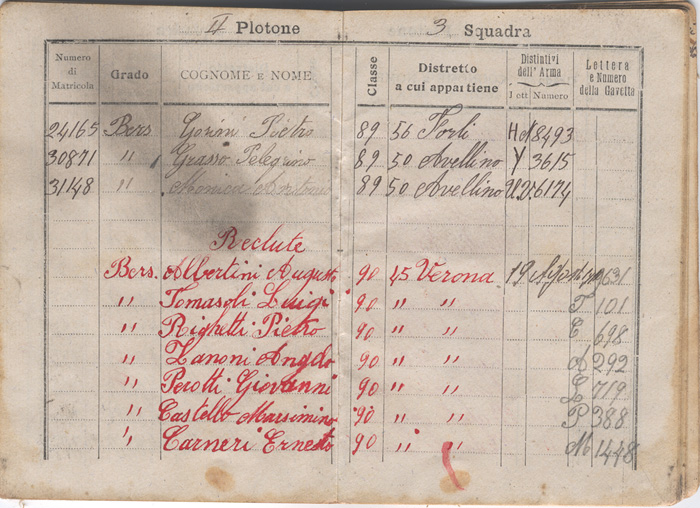 II Plotone 3 Squadra
Numero di Matricola Grado COGNOME E NOME Classe Distretto a cui appartiene Distintivi dell'Arma Lett. Numero Lettera e Numero della Gavetta
24165 Bers Gorini Pietro 89 56 Forlì H 8493
30871 " Grasso Pelegrino 89 50 Avellino Y 3615
3148 " Monica Antonio 89 50 Avellino 6174
Reclute
Bers. Albertini Augusto 90 45 Verona 19 631
" Tomasoli Luigi 90 " " T 101
" Righetti Pietro 90 " " E 698
" Zanoni Angelo 90 " " A 292
" Perotti Giovanni 90 " " L 719
" Castello Marsimino 90 " " P 388
" Carneri Ernesto 90 " " M 1448